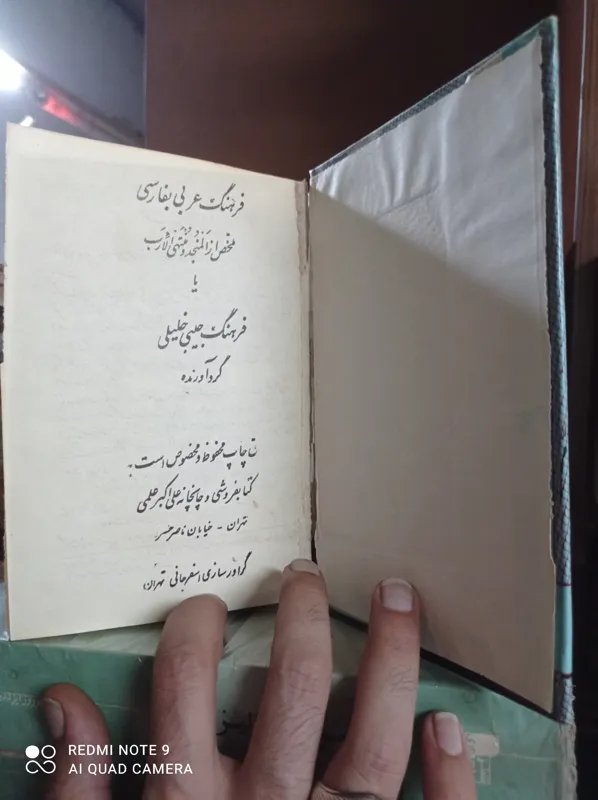 فرهنگ عربی بفارسی
ملخص از المنجد و منتهی الارب
یا
فرهنگ جیبی خلیلی
گردآورنده
چاپ محفوظ و مخصوص است به
کتابفروشی و چاپخانه علی اکبر علمی
تهران - خیابان ناصرخسرو
گراورسازی اسفرجانی تهران
REDMI NOTE 9
AI QUAD CAMERA